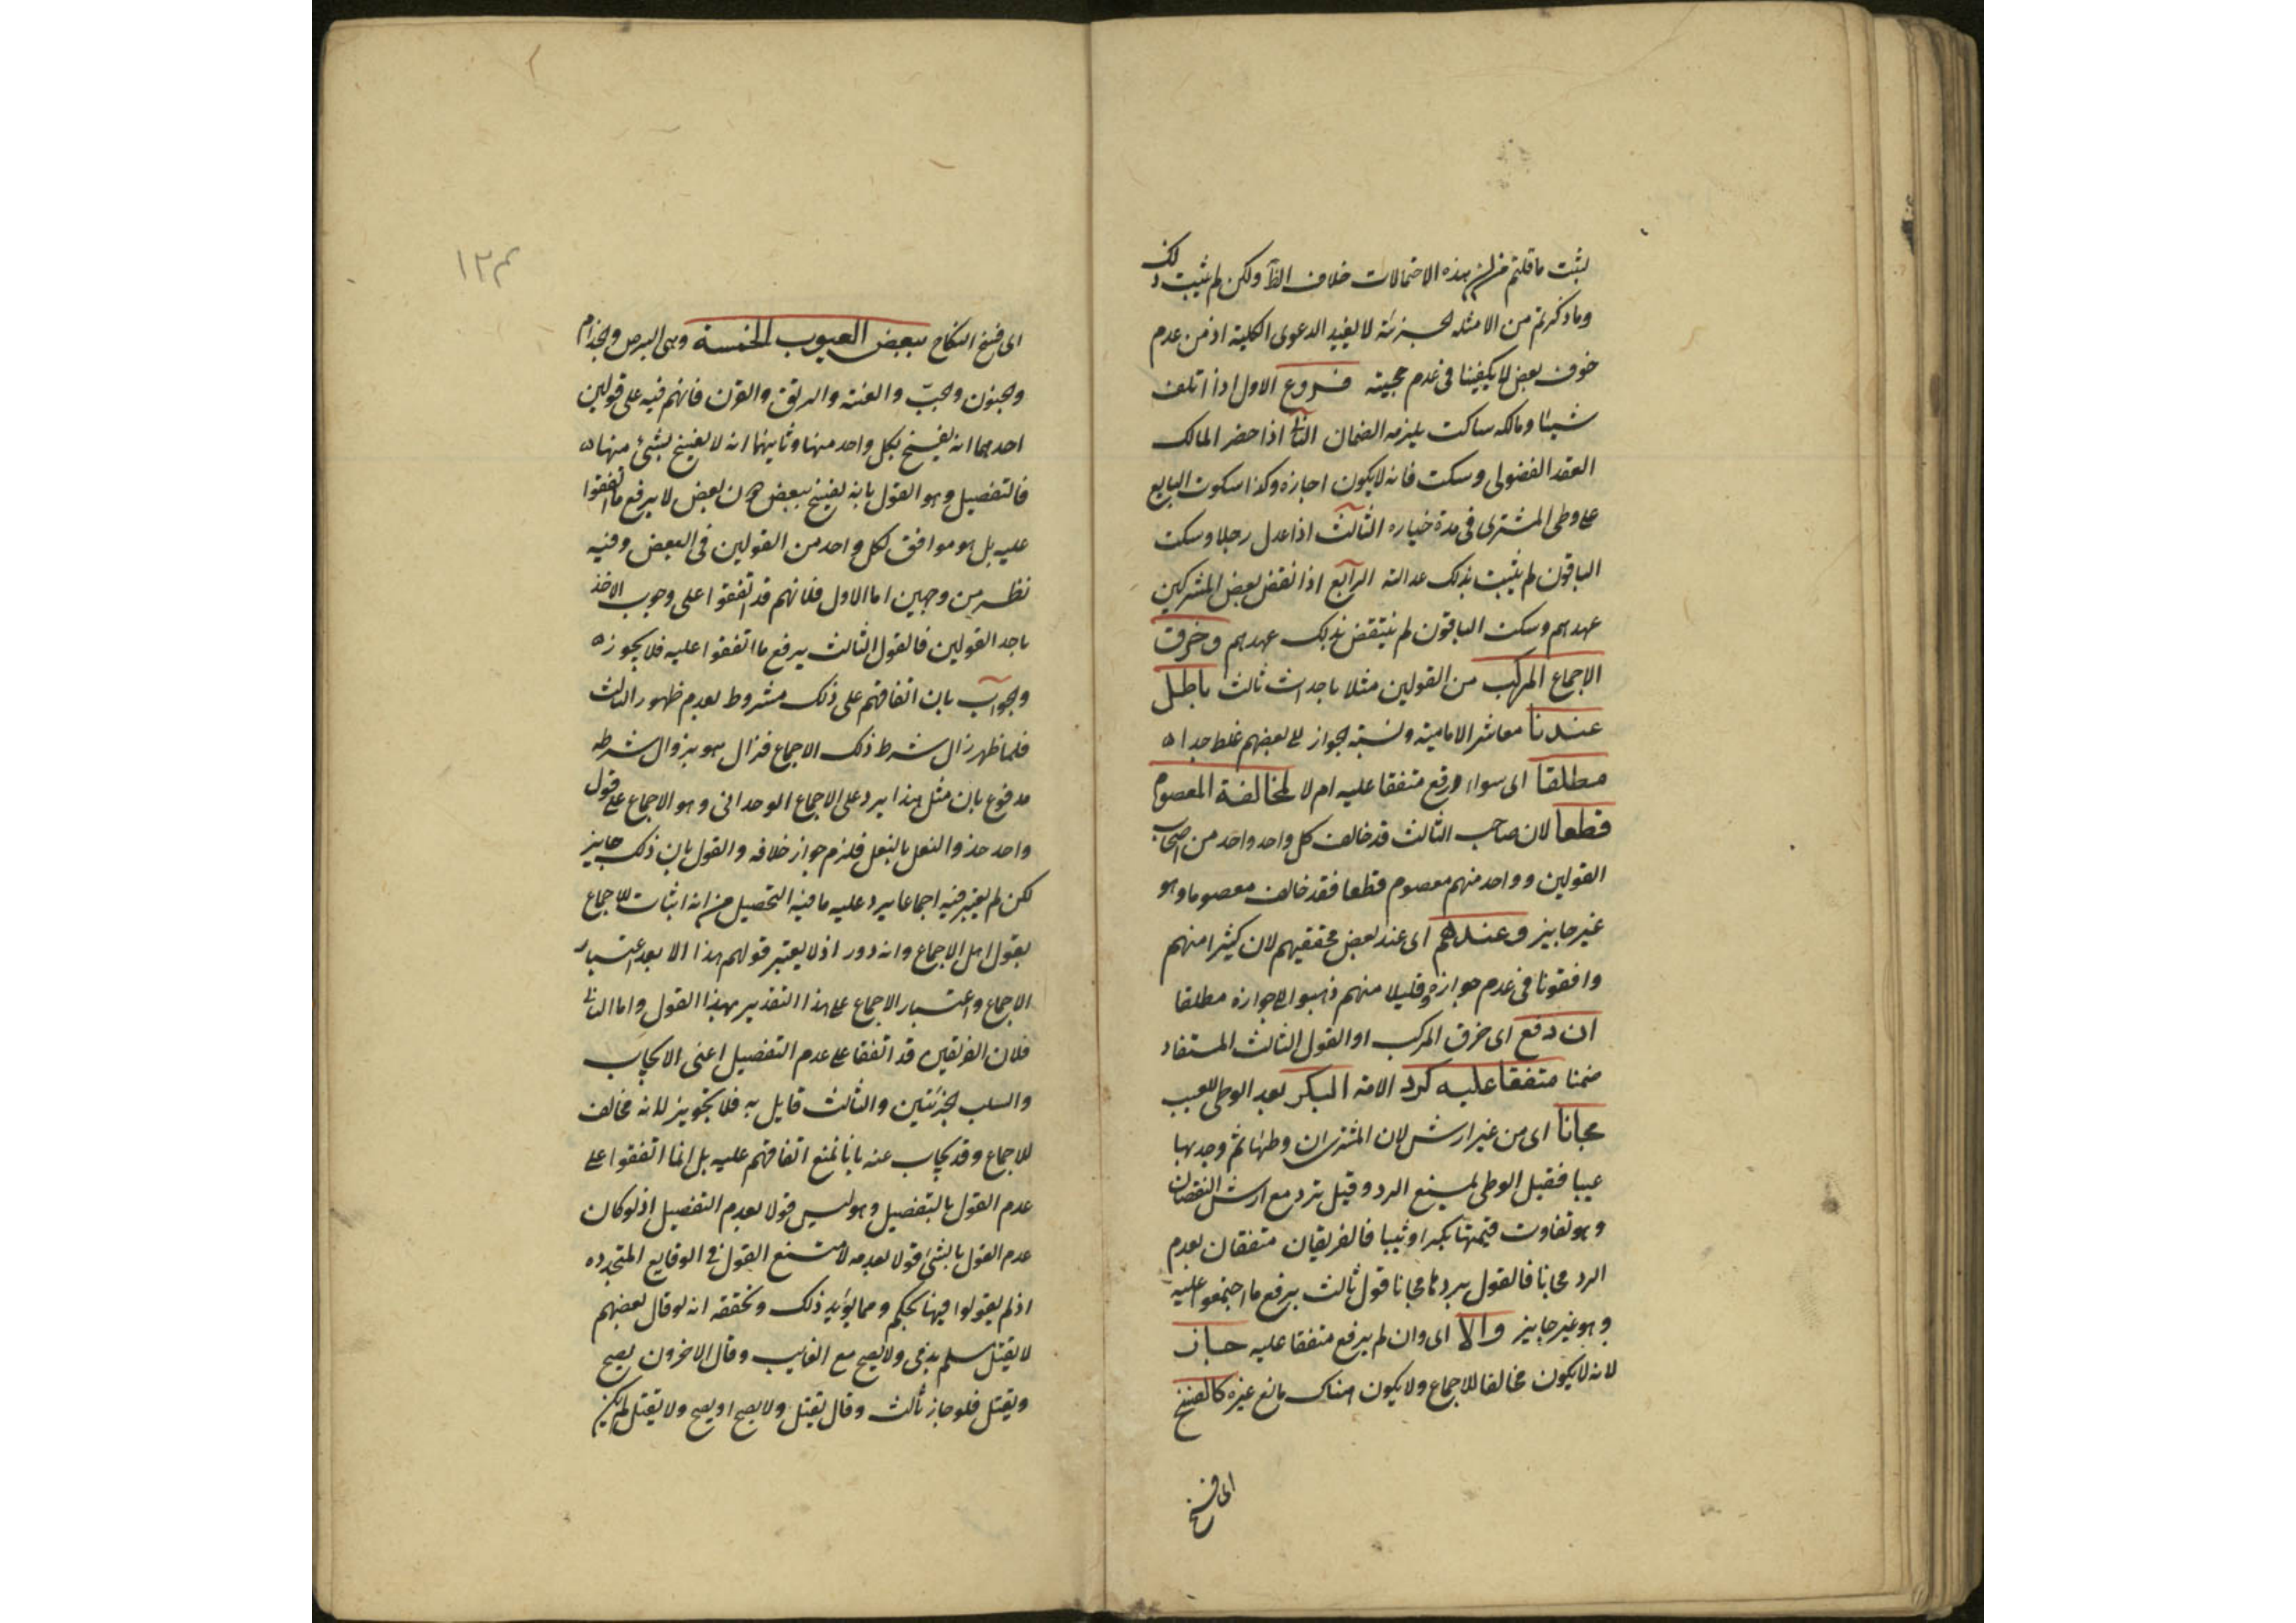 لثبت ما قلتم من ان هذه الاحتمالات خلاف الظا ولكن لم يثبت ذلك
وما ذكرتم من الامثلة الجزئية لا يفيد الدعوى الكلية اذ من عدم
خوف بعض لا يكفينا فى عدم حجيته فروع الاول اذا اتلف
شيئا ومالكه ساكت يلزمه الضمان الثانى اذا حضر المالك
العقد الفضولى وسكت فانه لا يكون اجازة وكذا سكوت البايع
على وطى المشترى فى مدة خياره الثالث اذا عدل رجلا وسكت
الباقون لم يثبت بذلك عدالته الرابع اذا نقض بعض المشركين
عهدهم وسكت الباقون لم ينتقض بذلك عهدهم وخرق
الاجماع المركب من القولين مثلا باحداث ثالث باطل
عندنا معاشر الامامية ونسبة الجواز الى بعضهم غلط جدا ه
مطلقا اى سواء رفع متفقا عليه ام لا لمخالفة المعصوم
قطعا لان صاحب الثالث قد خالف كل واحد واحد من اصحاب
القولين وواحد منهم معصوم قطعا فقد خالف معصوما وهو
غير جايز وعندهم اى عند بعض محققيهم لان كثيرا منهم
وافقونا فى عدم جوازه وقليلا منهم ذهبوا الى جوازه مطلقا
ان رفع اى خرق المركب او القول الثالث المستفاد
ضمنا متفقا عليه كرد الامة البكر بعد الوطى للعيب
مجانا اى من غير ارش لان المشترى ان وطئها ثم وجد بها
عيبا فقيل الوطى يمنع الرد وقيل ترد مع ارش النقصان
وهو تفاوت قيمتها بكرا وثيبا فالفريقان متفقان بعدم
الرد مجانا فالقول بردها مجانا قول ثالث يرفع ما اجتمعوا عليه
وهو غير جايز والا اى وان لم يرفع متفقا عليه جاز
لانه لا يكون مخالفا للاجماع ولا يكون هناك مانع غيره كالفسخ
اى فسخ
١٢٣
اى فسخ النكاح ببعض العيوب الخمسة وهى البرص والجذام
والجنون والجب والعنة والرتق والقرن فانهم فيه على قولين
احدهما انه يفسخ بكل واحد منها وثانيهما انه لا يفسخ بشئ منها ه
فالتفصيل وهو القول بانه يفسخ ببعض دون بعض لا يرفع ما اتفقوا
عليه بل هو موافق لكل واحد من القولين فى البعض وفيه
نظر من وجهين اما الاول فلانهم قد اتفقوا على وجوب الاخذ
باحد القولين فالقول الثالث يرفع ما اتفقوا عليه فلا يجوز ه
والجواب بان اتفاقهم على ذلك مشروط بعدم ظهور الثالث
فلما ظهر زال شرط ذلك الاجماع فزال هو بزوال شرطه
مدفوع بان مثل هذا يرد على الاجماع الوحدانى وهو الاجماع على قول
واحد حذو النعل بالنعل فلزم جواز خلافه والقول بان ذلك جايز
لكن لم يعتبر فيه اجماعا يرد عليه ما فيه التحصيل من انه اثبات للاجماع
بقول اهل الاجماع وانه دور اذ لا يعتبر قولهم هذا الا بعد اعتبار
الاجماع واعتبار الاجماع على هذا التقدير بهذا القول واما الثانى
فلان الفريقين قد اتفقا على عدم التفصيل اعنى الايجاب
والسلب الجزئيين والثالث قايل به فلا تجويز لانه مخالف
للاجماع وقد يجاب عنه بانا نمنع اتفاقهم عليه بل انما اتفقوا على
عدم القول بالتفصيل وهو ليس قولا بعدم التفصيل اذ لو كان
عدم القول بالشئ قولا بعدمه لامتنع القول فى الوقايع المتجدده
اذ لم يقولوا فيها بحكم ومما يؤيد ذلك ويحققه انه لو قال بعضهم
لا يقتل مسلم بذمى ولا يصح مع الغايب وقال الاخرون يصح
ويقتل فلو جاز ثالث وقال يقتل ولا يصح او يصح ولا يقتل لم يكن